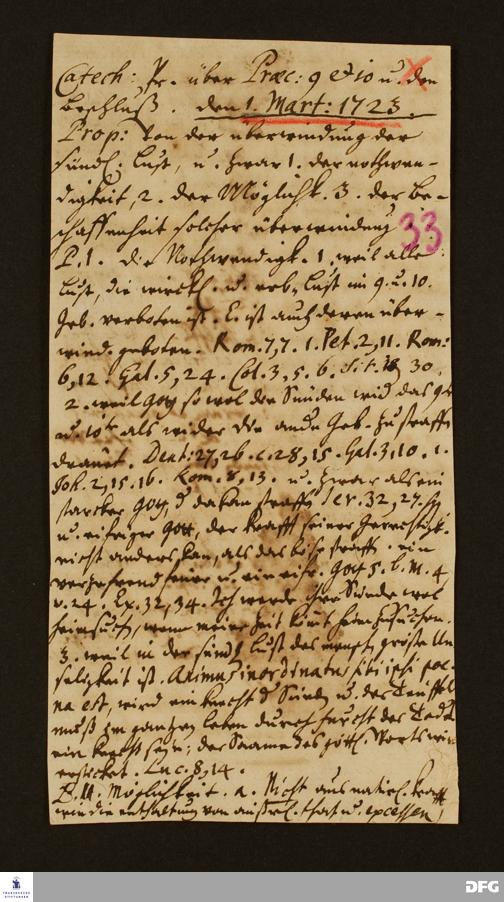 Catech: Pr. über Præc: 9 et 10 u. den
Beschluß. den 1. Mart: 1723.
Prop: Von der überwindung der
sündl. Lust, u. zwar 1. der nothwen-
digkeit, 2. der Möglichk. 3. der Be-
schaffenheit solcher überwindung
33
P. 1. Die Nothwendigk. 1. weil alle
Lust, die wirckl. u. erb-Lust im 9. u. 10.
Geb. verboten ist. E. ist auch deren über-
wind. geboten. Rom. 7,7. 1. Pet. 2,11. Rom:
6,12. Gal. 5,24. Col. 3,5. 6. Sir. 18, 30.
2. weil Gott so wol den Sünden wid. das 9te
u. 10te als wider die andn Geb. zu straffn
dräuet. Deut: 27,26. c. 28,15. Gal. 3,10. 1.
Joh. 2,15.16. Rom. 8,13. u. zwar als ein
starcker Gott, d da kan straffn Jer. 32,27.
u. eifriger Gott, der krafft seiner Gerechtigk.
nicht anders kan, als das böse straffn. ein
verzehrend feuer u. ein eifr. Gott 5. B. M. 4,
v. 24. Ex. 32,34. Ich werde ihre Sünde wol
heimsuchn, wenn meine Zeit komt heimzusuchen.
3. weil in der sündl. Lust des menschn gröste Un-
seligkeit ist. Animus inordinatus sibi ipsi poe-
na est, wird ein knecht d Sünden u. des Teuffels
muß im gantzen leben durch furcht des Todes
ein knecht seyn; der Saame des göttl. Worts wird
ersticket. Luc. 8,14.
P. II. Möglichkeit. a. Nicht aus natürl. krafft
wie die enthaltung von äußerl. that u. excessen,
FRANCKESCHE STIFTUNGEN
DFG